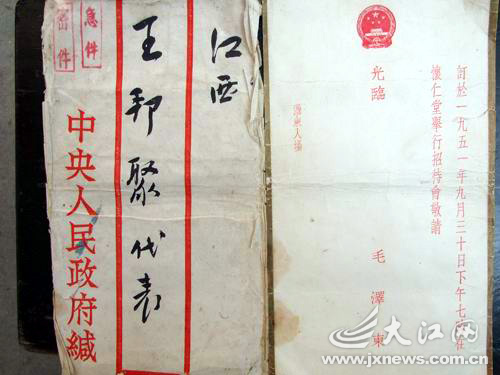 急件
密件
江西
王邦聚代表
中央人民政府緘
訂於一九五一年九月三十日下午七時在
懷仁堂舉行招待會敬請
光臨
毛澤東
憑柬入場
大江网
www.jxnews.com.cn